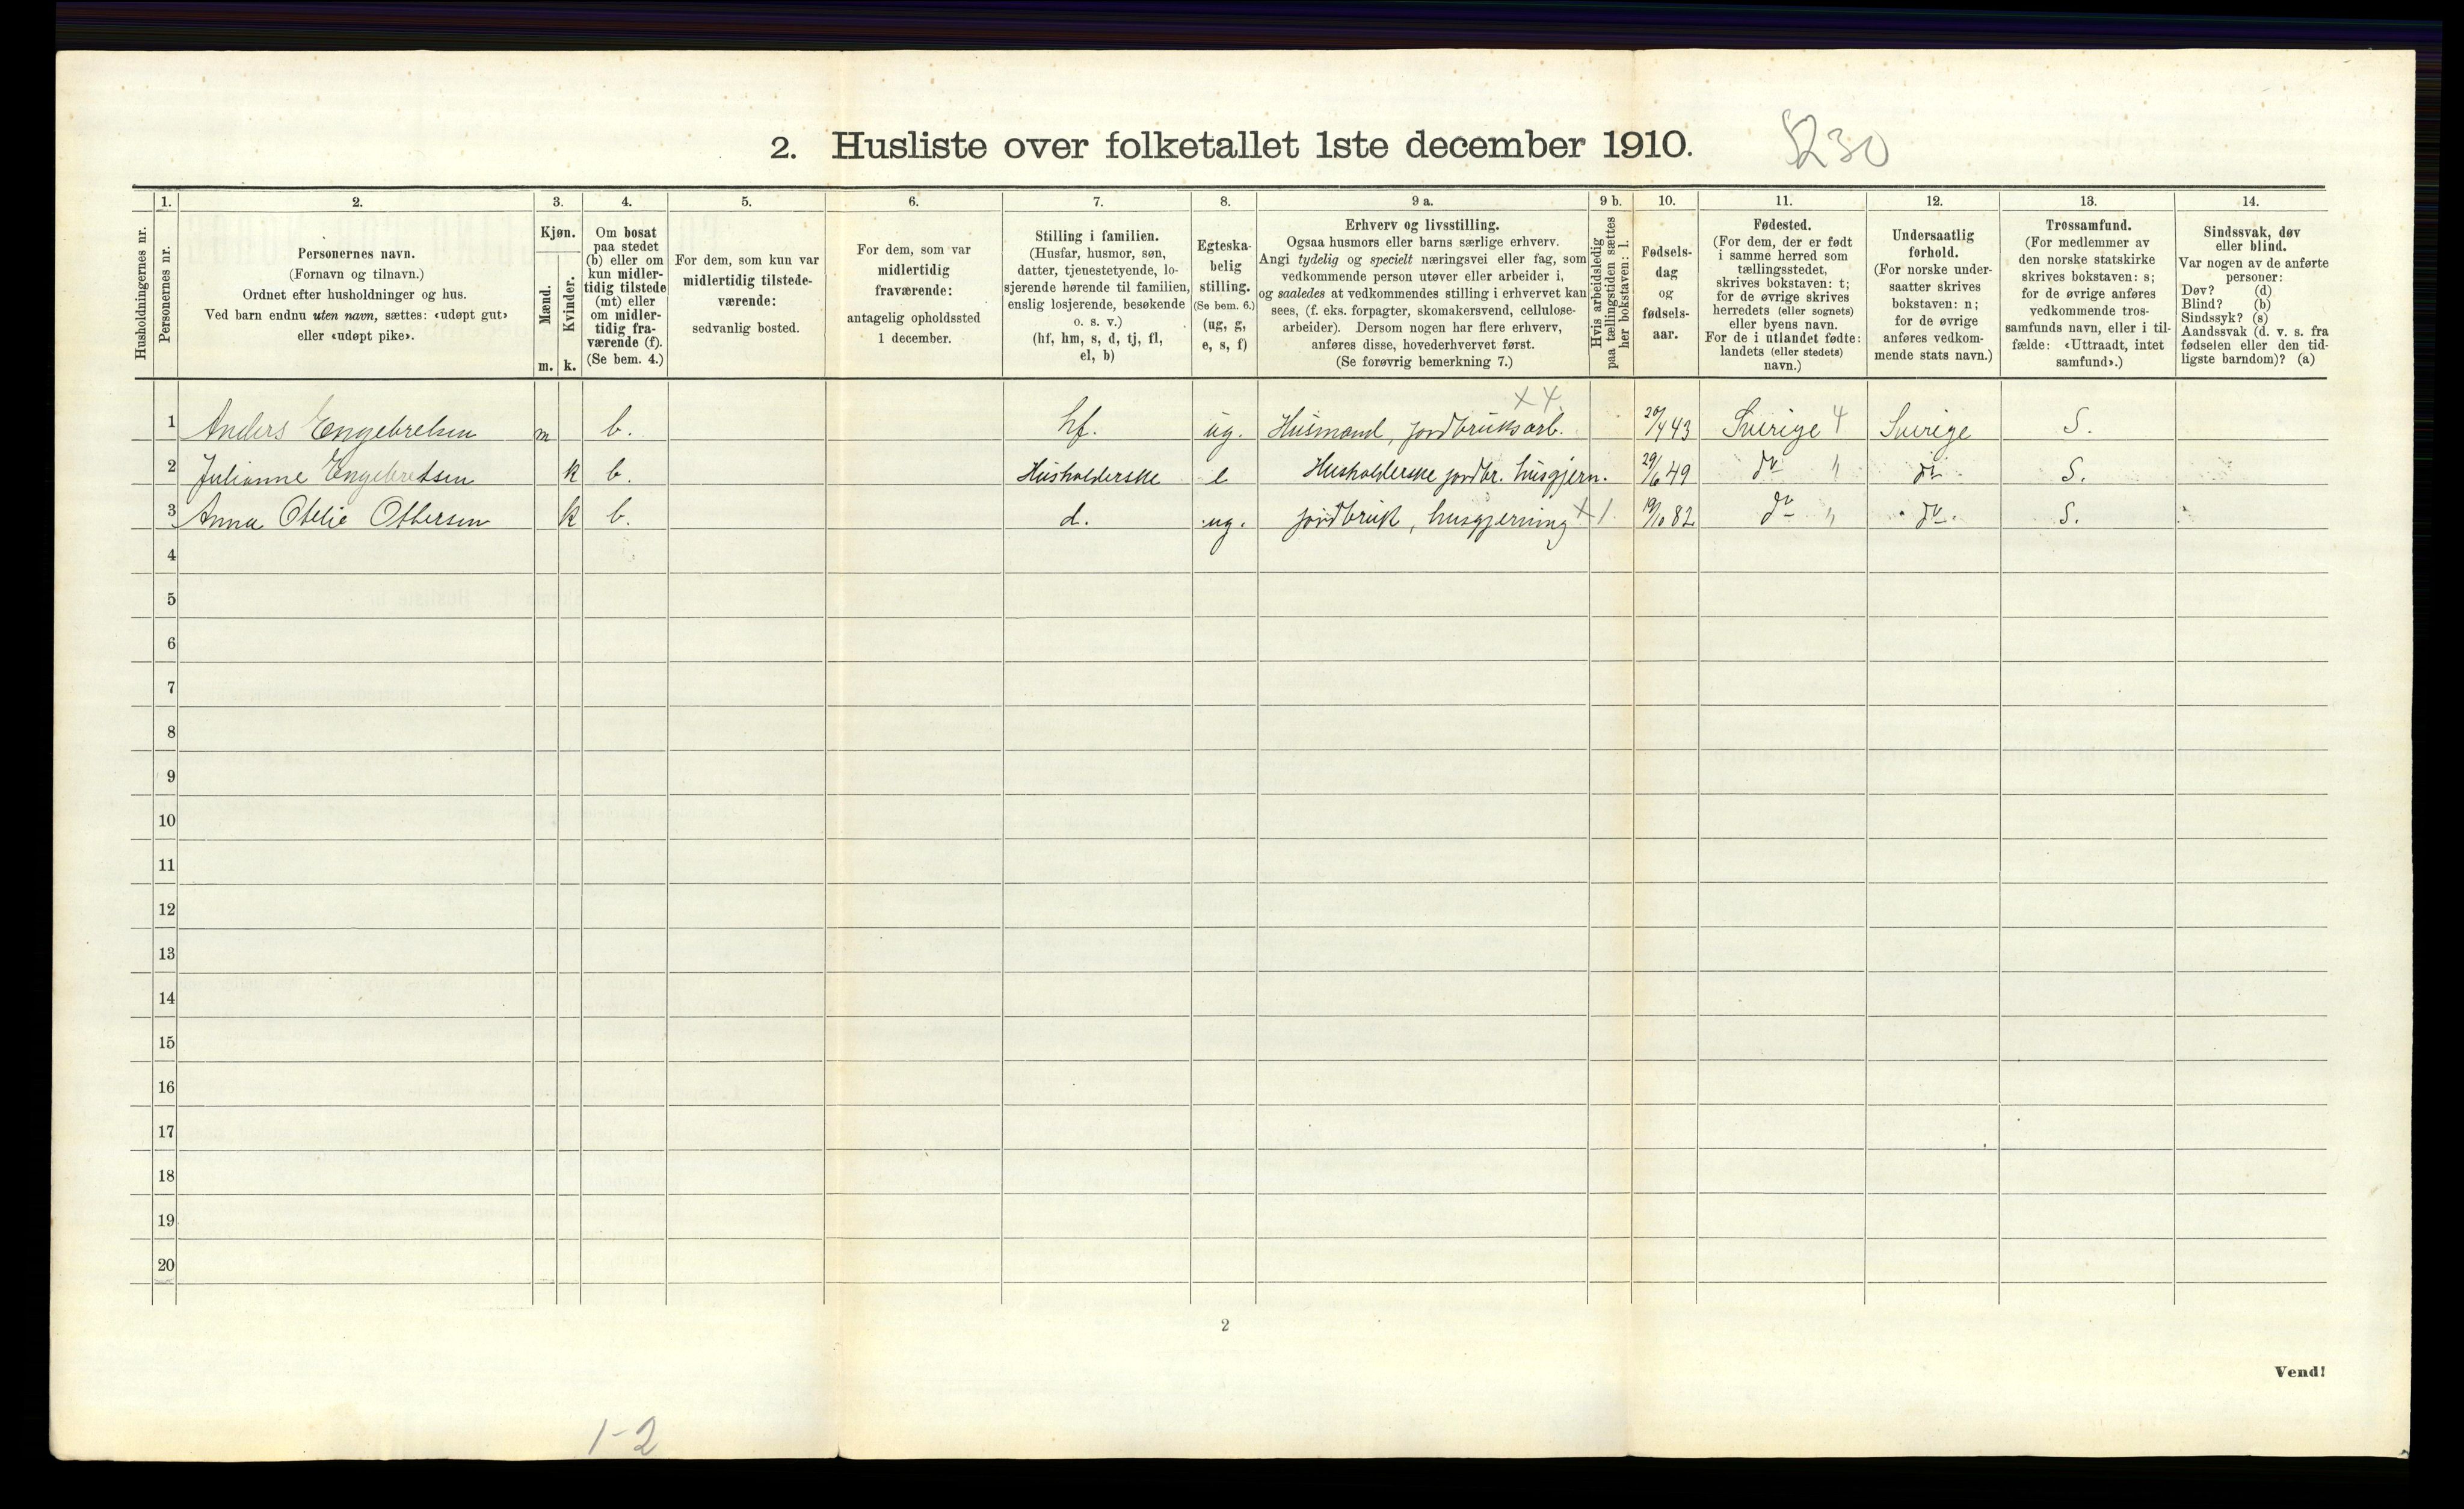 2. Husliste over folketallet 1ste december 1910.
Husholdningernes nr.
1.
Personernes nr.
2.
Personernes navn.
(Fornavn og tilnavn.)
Ordnet efter husholdninger og hus.
Ved barn endnu uten navn, sættes: «udøpt gut»
eller «udøpt pike».
3.
Kjøn.
Mænd.
Kvinder.
m.
k.
4.
Om bosat
paa stedet
(b) eller om
kun midler-
tidig tilstede
(mt) eller
om midler-
tidig fra-
værende (f).
(Se bem. 4.)
5.
For dem, som kun var
midlertidig tilstede-
værende:
sedvanlig bosted.
6.
For dem, som var
midlertidig
fraværende:
antagelig opholdssted
1 december.
7.
Stilling i familien.
(Husfar, husmor, søn,
datter, tjenestetyende, lo-
sjerende hørende til familien,
enslig losjerende, besøkende
o. s. v.)
(hf, hm, s, d, tj, fl,
el, b)
8.
Egteska-
belig
stilling.
(Se bem. 6.)
(ug, g,
e, s, f)
9 a.
Erhverv og livsstilling.
Ogsaa husmors eller barns særlige erhverv.
Angi tydelig og specielt næringsvei eller fag, som
vedkommende person utøver eller arbeider i,
og saaledes at vedkommendes stilling i erhvervet kan
sees, (f. eks. forpagter, skomakersvend, cellulose-
arbeider). Dersom nogen har flere erhverv,
anføres disse, hovederhvervet først.
(Se forøvrig bemerkning 7.)
9 b.
Hvis arbeidsledig
paa tællingstiden sættes
her bokstaven: l.
10.
Fødsels-
dag
og
fødsels-
aar.
11.
Fødested.
(For dem, der er født
i samme herred som
tællingsstedet,
skrives bokstaven: t;
for de øvrige skrives
herredets (eller sognets)
eller byens navn.
For de i utlandet fødte:
landets (eller stedets)
navn.)
12.
Undersaatlig
forhold.
(For norske under-
saatter skrives
bokstaven: n;
for de øvrige
anføres vedkom-
mende stats navn.)
13.
Trossamfund.
(For medlemmer av
den norske statskirke
skrives bokstaven: s;
for de øvrige anføres
vedkommende tros-
samfunds navn, eller i til-
fælde: «Uttraadt, intet
samfund».)
14.
Sindssvak, døv
eller blind.
Var nogen av de anførte
personer:
Døv? (d)
Blind? (b)
Sindssyk? (s)
Aandssvak (d. v. s. fra
fødselen eller den tid-
ligste barndom)? (a)
x 4
1 Anders Engebretsen m b. hf. ug. Husmand, jordbruksarb. 20/4 43 Sverige 4 Sverige S.
2 Julianne Engebretsen k b. Husholderske e Husholderske jordbr. husgjern. 29/6 49 do do S.
3 Anna Otelie Ottersen k b. d. ug. jordbruk, husgjerning x 1 19/10 82 do do. S.
4
5
6
7
8
9
10
11
12
13
14
15
16
17
18
19
20
2
Vend!
1-2